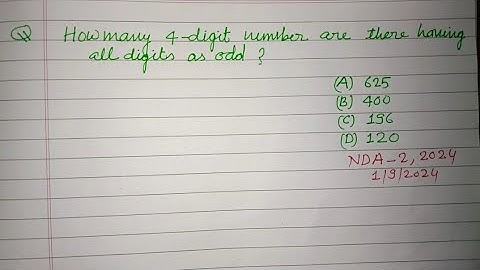 Q How many 4-digit number are there having
all digits as odd ?
(A) 625
(B) 400
(C) 196
(D) 120
NDA-2, 2024
1/9/2024